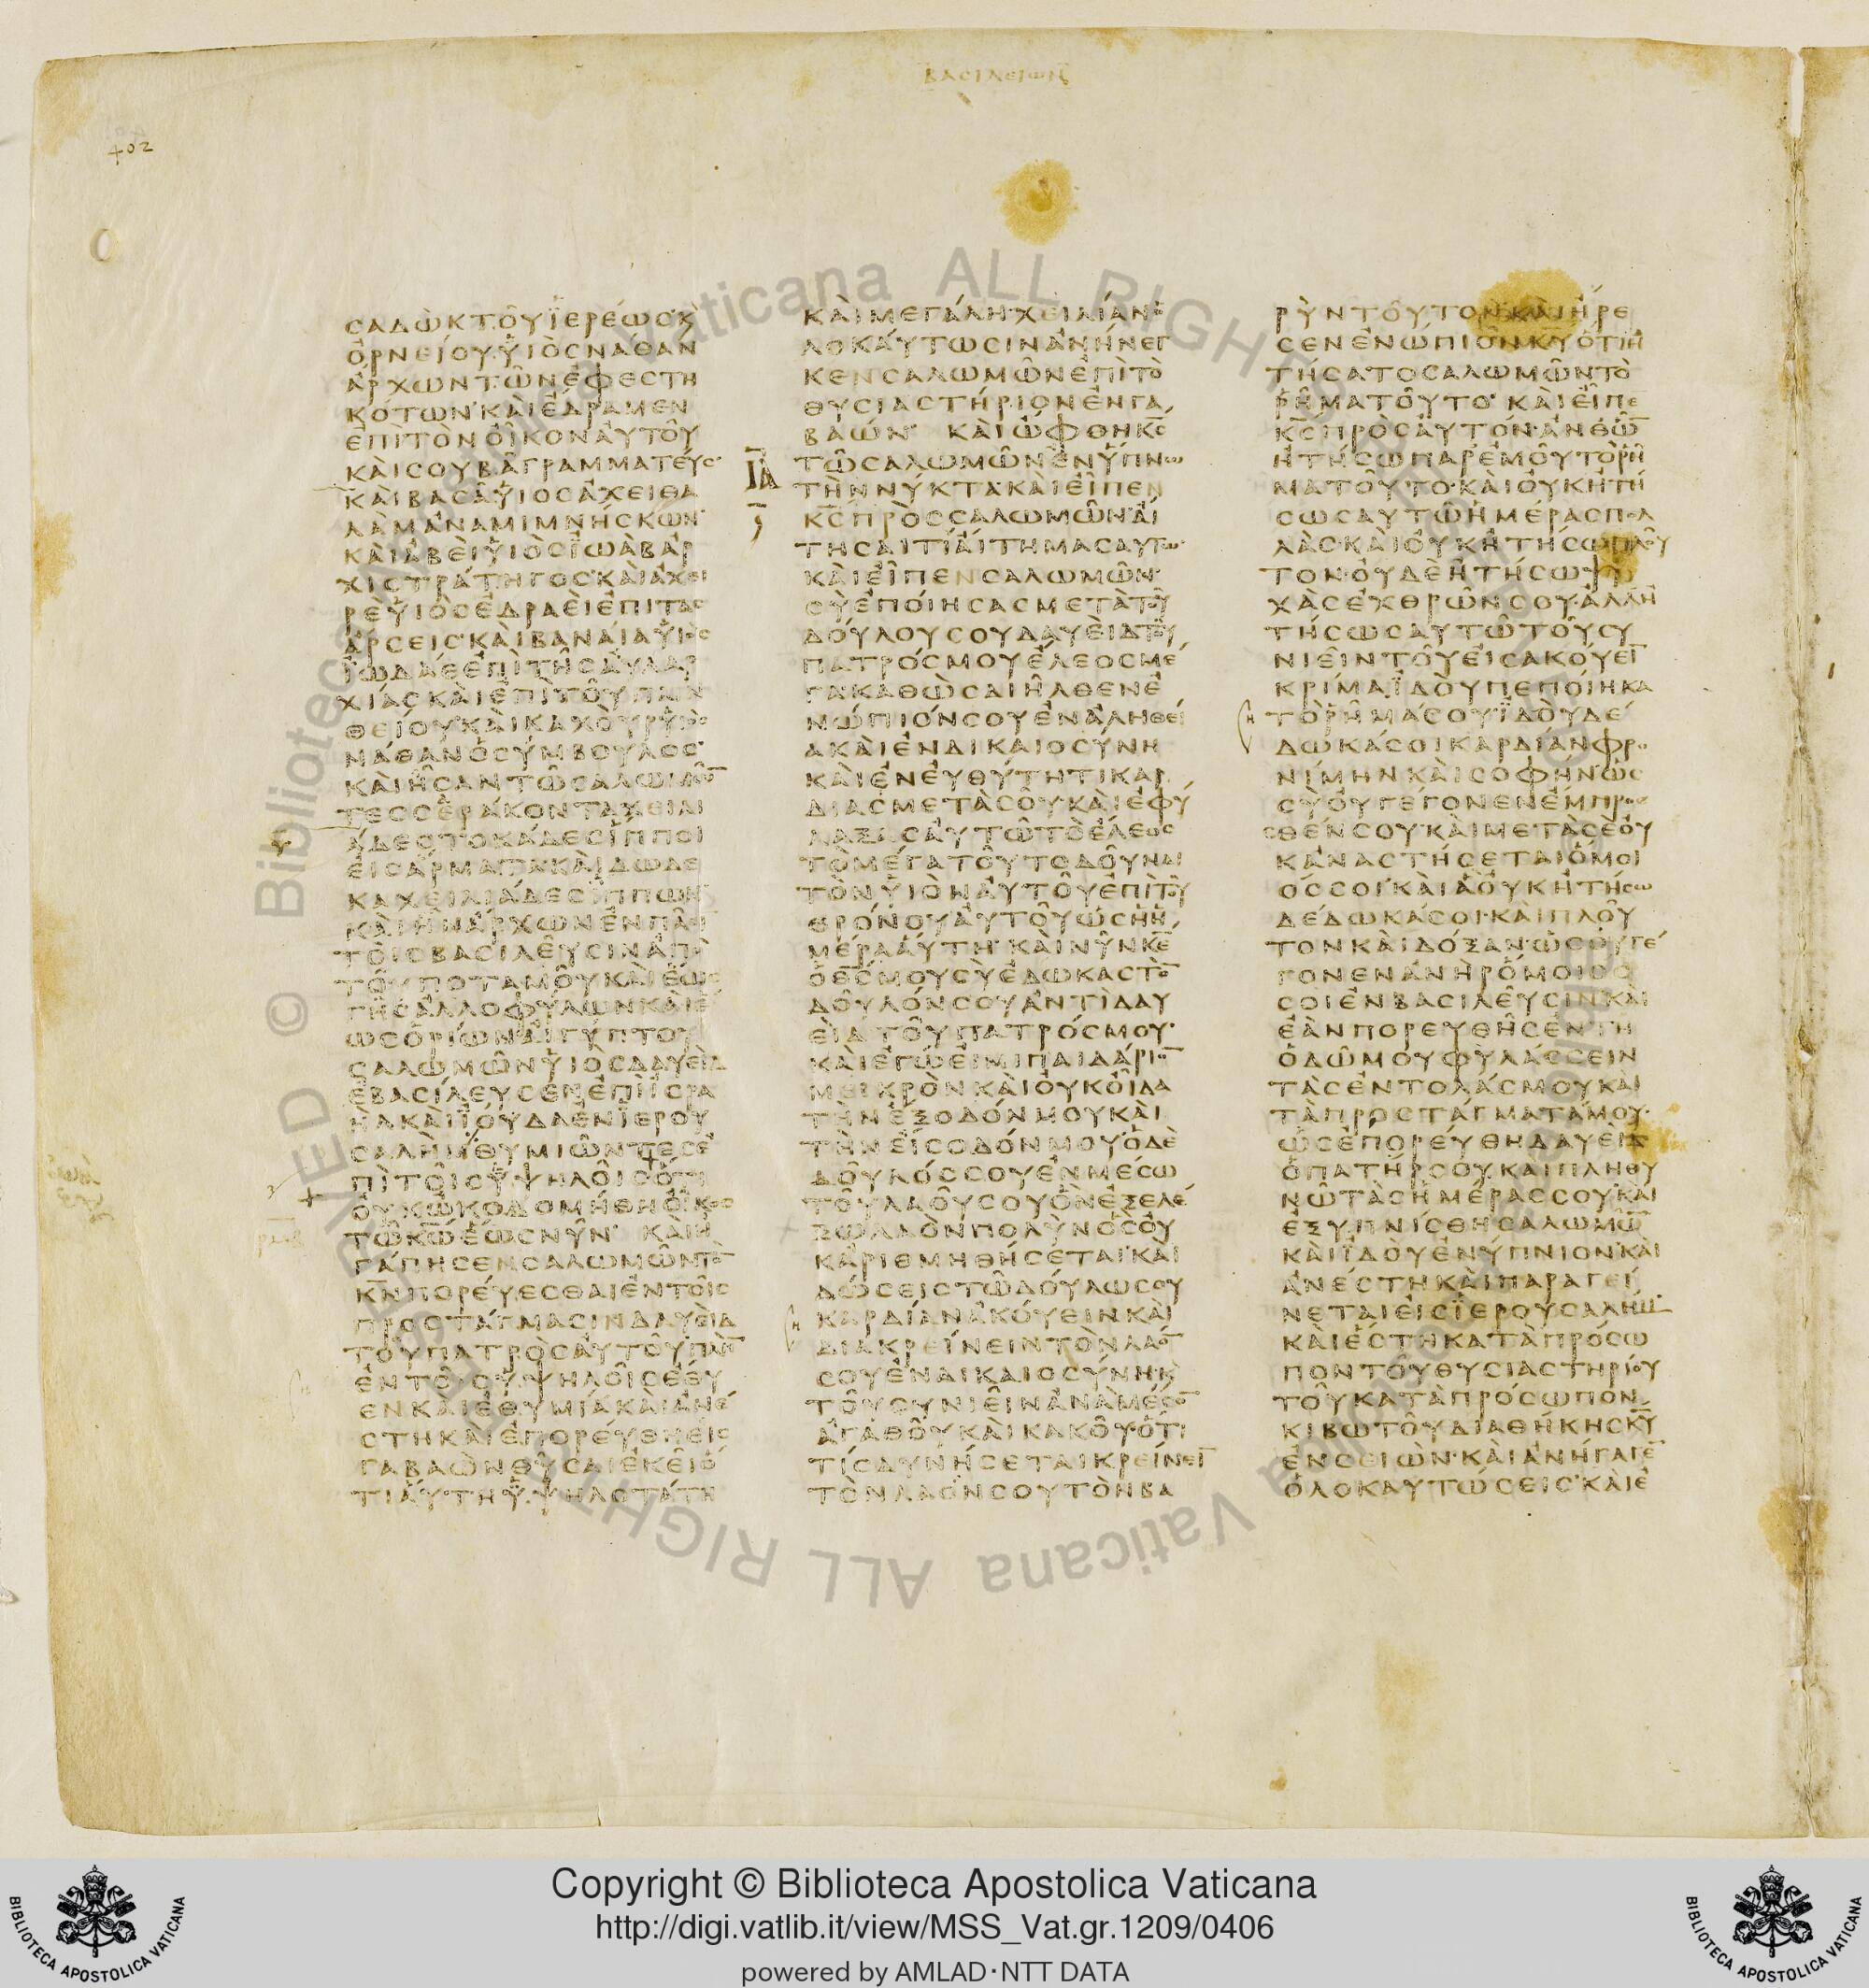 ΒΑСΙΛΕΙΩΝ
402
СΑΔΩΚΤΟΥΙΕΡΕΩС·Κ
ΟΡΝΕΙΟΥΥΙΟСΝΑΘΑΝ
ΑΡΧΩΝΤΩΝΕΦΕСΤΗ
ΚΟΤΩΝ·ΚΑΙΕΔΡΑΜΕΝ
ΕΠΙΤΟΝΟΙΚΟΝΑΥΤΟΥ
ΚΑΙСΟΥΒΑΓΡΑΜΜΑΤΕΥС·
ΚΑΙΒΑСΑΥΙΟСΑΧΕΙΘΑ
ΛΑΜΑΝΑΜΙΜΝΗСΚΩΝ·
ΚΑΙΑΒΕΙΥΙΟСΙΩΑΒΑΡ
ΧΙСΤΡΑΤΗΓΟС·ΚΑΙΑΧΕΙ
ΡΕΥΙΟСΕΔΡΑΕΙΕΠΙΤΑС
ΑΡСΕΙС·ΚΑΙΒΑΝΑΙΑΥΙΟС
ΙΩΔΑΕΕΠΙΤΗСΑΥΛΑΡ
ΧΙΑСΚΑΙΕΠΙΤΟΥΠΛΙΝ
ΘΕΙΟΥ·ΚΑΙΚΑΧΟΥΡΥΙΟС
ΝΑΘΑΝΟСΥΜΒΟΥΛΟС·
ΚΑΙΗСΑΝΤΩСΑΛΩΜΩ̅
ΤΕССΕΡΑΚΟΝΤΑΧΕΙΛΙ
ΑΔΕСΤΟΚΑΔΕСΙΠΠΟΙ
ΕΙСΑΡΜΑΤΑΚΑΙΔΩΔΕ
ΚΑΧΕΙΛΙΑΔΕСΙΠΠΩΝ·
ΚΑΙΗΝΑΡΧΩΝΕΝΠΑСΙ
ΤΟΙСΒΑСΙΛΕΥСΙΝΑΠΟ
ΤΟΥΠΟΤΑΜΟΥΚΑΙΕΩС
ΓΗСΑΛΛΟΦΥΛΩΝΚΑΙΕ
ΩСΟΡΙΩΝΑΙΓΥΠΤΟΥ
СΑΛΩΜΩΝΥΙΟСΔΑΥΕΙΔ
ΕΒΑСΙΛΕΥСΕΝΕΠΙΙСΡΑ
ΗΛΚΑΙΙΟΥΔΑΕΝΙΕΡΟΥ
СΑΛΗΜ
ΠΙΤΟΙСΥΨΗΛΟΙСΟΤΙ
ΟΥΚΩΚΟΔΟΜΗΘΗΟΙΚΟС
ΤΩΚ̅Ω̅ΕΩСΝΥΝ· ΚΑΙΗ
ΓΑΠΗСΕΝСΑΛΩΜΩΝΤΟ̅
Κ̅Ν̅ΠΟΡΕΥΕСΘΑΙΕΝΤΟΙС
ΠΡΟСΤΑΓΜΑСΙΝΔΑΥΕΙΔ
ΤΟΥΠΑΤΡΟСΑΥΤΟΥΠΛΗ̅
ΕΝΤΟΙСΥΨΗΛΟΙСΕΘΥ
ΕΝΚΑΙΕΘΥΜΙΑΚΑΙΑΝΕ
СΤΗΚΑΙΕΠΟΡΕΥΘΗΕΙС
ΓΑΒΑΩΝΘΥСΑΙΕΚΕΙΟ
ΤΙΑΥΤΗΥΨΗΛΟΤΑΤΗ
ΚΑΙΜΕΓΑΛΗ·ΧΕΙΛΙΑΝΟ
ΛΟΚΑΥΤΩСΙΝΑΝΗΝΕΓ
ΚΕΝСΑΛΩΜΩΝΕΠΙΤΟ
ΘΥСΙΑСΤΗΡΙΟΝΕΝΓΑ
ΒΑΩΝ· ΚΑΙΩΦΘΗΚ̅С̅
ΙΑ
ΤΩСΑΛΩΜΩΝΕΝΥΠΝΩ
ΤΗΝΝΥΚΤΑ·ΚΑΙΕΙΠΕΝ
Κ̅С̅ΠΡΟССΑΛΩΜΩΝ·ΑΙ
ΤΗСΑΙΤΙΑΙΤΗΜΑСΑΥΤΩ·
ΚΑΙΕΙΠΕΝСΑΛΩΜΩΝ·
СΥΕΠΟΙΗСΑСΜΕΤΑΤΟΥ
ΔΟΥΛΟΥСΟΥΔΑΥΕΙΔΤΟΥ
ΠΑΤΡΟСΜΟΥΕΛΕΟСΜΕ
ΓΑΚΑΘΩСΔΙΗΛΘΕΝΕ
ΝΩΠΙΟΝСΟΥΕΝΑΛΗΘΕΙ
ΑΚΑΙΕΝΔΙΚΑΙΟСΥΝΗ
ΚΑΙΕΝΕΥΘΥΤΗΤΙΚΑΡ
ΔΙΑСΜΕΤΑСΟΥΚΑΙΕΦΥ
ΛΑΞΑСΑΥΤΩΤΟΕΛΕΟС
ΤΟΜΕΓΑΤΟΥΤΟΔΟΥΝΑΙ
ΤΟΝΥΙΟΝΑΥΤΟΥΕΠΙΤΟΥ
ΘΡΟΝΟΥΑΥΤΟΥΩСΗΗ
ΜΕΡΑΑΥΤΗ·ΚΑΙΝΥΝΚ̅Ε̅
ΟΘ̅С̅ΜΟΥСΥΕΔΩΚΑСΤΟ̅
ΔΟΥΛΟΝСΟΥΑΝΤΙΔΑΥ
ΕΙΔΤΟΥΠΑΤΡΟСΜΟΥ·
ΚΑΙΕΓΩΕΙΜΙΠΑΙΔΑΡΙΟ̅
ΜΕΙΚΡΟΝΚΑΙΟΥΚΟΙΔΑ
ΤΗΝΕΞΟΔΟΝΜΟΥΚΑΙ
ΤΗΝΕΙСΟΔΟΝΜΟΥ·ΟΔΕ
ΔΟΥΛΟССΟΥΕΝΜΕСΩ
ΤΟΥΛΑΟΥСΟΥΟΝΕΞΕΛΕ
ΞΩΛΑΟΝΠΟΛΥΝΟСΟΥ
ΚΑΡΙΘΜΗΘΗСΕΤΑΙ·ΚΑΙ
ΔΩСΕΙСΤΩΔΟΥΛΩСΟΥ
ΚΑΡΔΙΑΝΑΚΟΥΕΙΝΚΑΙ
ΔΙΑΚΡΕΙΝΕΙΝΤΟΝΛΑΟ̅
СΟΥΕΝΔΙΚΑΙΟСΥΝΗ·Κ
ΤΟΥСΥΝΙΕΙΝΑΝΑΜΕСΟ̅
ΑΓΑΘΟΥΚΑΙΚΑΚΟΥ·ΟΤΙ
ΤΙСΔΥΝΗСΕΤΑΙΚΡΕΙΝΕΙ̅
ΤΟΝΛΑΟΝСΟΥΤΟΝΒΑ
ΡΥΝΤΟΥΤΟΝ·ΚΑΙΗΡΕ
СΕΝΕΝΩΠΙΟΝΚ̅Υ̅ΟΤΙΗ
ΤΗСΑΤΟСΑΛΩΜΩΝΤΟ
ΡΗΜΑΤΟΥΤΟ· ΚΑΙΕΙΠΕ
Κ̅С̅ΠΡΟСΑΥΤΟΝ·ΑΝΘΩ̅
ΗΤΗСΩΠΑΡΕΜΟΥΤΟΡΗ
ΜΑΤΟΥΤΟ·ΚΑΙΟΥΚΗΤΗ
СΩСΑΥΤΩΗΜΕΡΑСΠΟΛ
ΛΑС·ΚΑΙΟΥΚΗΤΗСΩΠΛΟΥ
ΤΟΝ·ΟΥΔΕΗΤΗСΩΨΥ
ΧΑСΕΧΘΡΩΝСΟΥ·ΑΛΛΗ
ΤΗСΩСΑΥΤΩΤΟΥСΥ
ΝΙΕΙΝΤΟΥΕΙСΑΚΟΥΕΙ̅
ΚΡΙΜΑ·ΙΔΟΥΠΕΠΟΙΗΚΑ
ΤΟΡΗΜΑСΟΥ·ΙΔΟΥΔΕ
ΔΩΚΑСΟΙΚΑΡΔΙΑΝΦΡΟ
ΝΙΜΗΝΚΑΙСΟΦΗΝ·ΩС
СΥΟΥΓΕΓΟΝΕΝΕΜΠΡΟ
СΘΕΝСΟΥ·ΚΑΙΜΕΤΑСΕΟΥ
ΚΑΝΑСΤΗСΕΤΑΙΟΜΟΙ
ΟССΟΙ·ΚΑΙΑΟΥΚΗΤΗСΩ
ΔΕΔΩΚΑСΟΙ·ΚΑΙΠΛΟΥ
ΤΟΝΚΑΙΔΟΞΑΝ·ΩСΟΥΓΕ
ΓΟΝΕΝΑΝΗΡΟΜΟΙΟС
СΟΙΕΝΒΑСΙΛΕΥСΙΝ·ΚΑΙ
ΕΑΝΠΟΡΕΥΘΗСΕΝΤΗ
ΟΔΩΜΟΥΦΥΛΑССΕΙΝ
ΤΑСΕΝΤΟΛΑСΜΟΥΚΑΙ
ΤΑΠΡΟСΤΑΓΜΑΤΑΜΟΥ·
ΩСΕΠΟΡΕΥΘΗΔΑΥΕΙΔ
ΟΠΑΤΗΡСΟΥ·ΚΑΙΠΛΗΘΥ
ΝΩΤΑСΗΜΕΡΑССΟΥ·ΚΑΙ
ΕΞΥΠΝΙСΘΗСΑΛΩΜΩ̅
ΚΑΙΙΔΟΥΕΝΥΠΝΙΟΝ·ΚΑΙ
ΑΝΕСΤΗΚΑΙΠΑΡΑΓΕΙ
ΝΕΤΑΙΕΙСΙΕΡΟΥСΑΛΗΜ
ΚΑΙΕСΤΗΚΑΤΑΠΡΟСΩ
ΠΟΝΤΟΥΘΥСΙΑСΤΗΡΙΟΥ
ΤΟΥΚΑΤΑΠΡΟСΩΠΟΝ
ΚΙΒΩΤΟΥΔΙΑΘΗΚΗСΚ̅Υ̅
ΕΝСΕΙΩΝ·ΚΑΙΑΝΗΓΑΓΕ̅
ΟΛΟΚΑΥΤΩСΕΙС·ΚΑΙΕ
© Biblioteca Apostolica Vaticana ALL RIGHTS RESERVED
Copyright © Biblioteca Apostolica Vaticana
http://digi.vatlib.it/view/MSS_Vat.gr.1209/0406
powered by AMLAD·NTT DATA
BIBLIOTECA APOSTOLICA VATICANA
BIBLIOTECA APOSTOLICA VATICANA